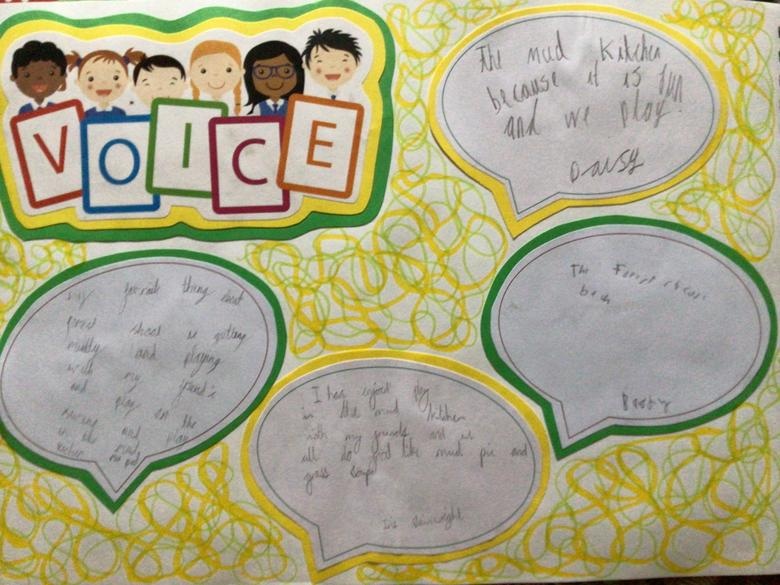 VOICE
The mud kitchen
because it is fun
and we play.
Daisy
my favroite thing about
forest shcool is getting
muddy and playing
with my friend's
and play on the
swing and play
in the mud
The Forest
I has injoid
in the mud kitchen
with my friends and we
all do food like mud pie and
grass soup